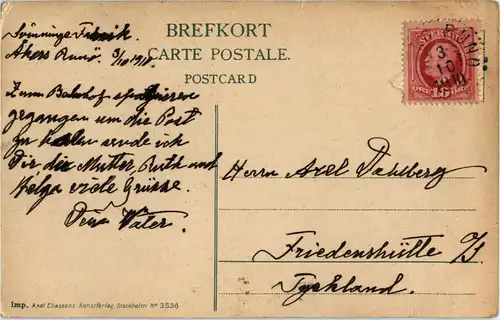 BREFKORT
CARTE POSTALE.
POSTCARD
Svinninge Fabrik
Åkers Runö 3/10 1910
Zum Bahnhof spazieren
gegangen um die Post
zu holen sende ich
Dir die Mutter, Ruth und
Helga viele Grüsse.
Dein Vater.
RUNÖ
3
10
1910
SVERIGE
ÖRE 10 ÖRE
Herrn Axel Dahlberg
Friedenshütte
Tyskland.
Imp. Axel Eliassons Konstförlag, Stockholm No 3538